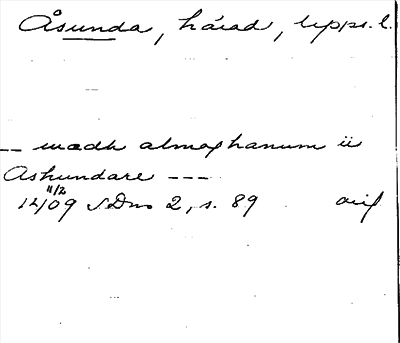 Åsunda, härad, Upps. l.
-- mædh almoghanum ii
Ashundare ---
11/2
1409 SDns 2, s. 89 avsl